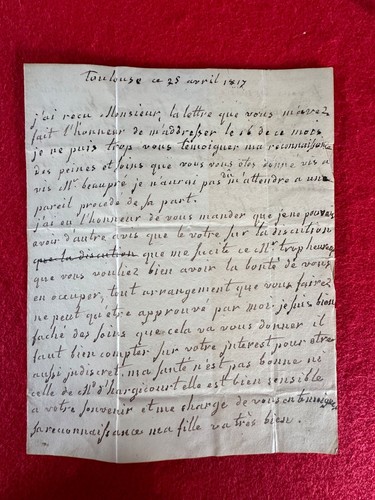 Toulouse ce 25 avril 1817
j'ai recu Monsieur, la lettre que vous m'avez
fait l'honneur de m'addresser le 16 de ce mois
je ne puis trop vous témoigner ma reconnaissance
des peines et soins que vous vous êtes donné vis a
vis Mr. beaupré je n'aurai pas dûm'attendre a une
pareil procede de sa part.
j'ai eu l'honneur de vous mander que je ne pouvois
avoir d'autre avis que le votre sur la discution
que la discution que me sucite ce Mr. trop heureux
que vous vouliez bien avoir la bonté de vous
en occuper, tout arrangement que vous fairez
ne peut qu'être approuvé par moi. je suis bien
faché des soins que cela va vous donner il
faut bien compter sur votre interest pour être
aussi indiscret. ma santé n'est pas bonne ni
celle de Md. d'hargicourt elle est bien sensible
a votre souvenir et me charge de vous en temoigner
sa reconnaissance ma fille va très bien.